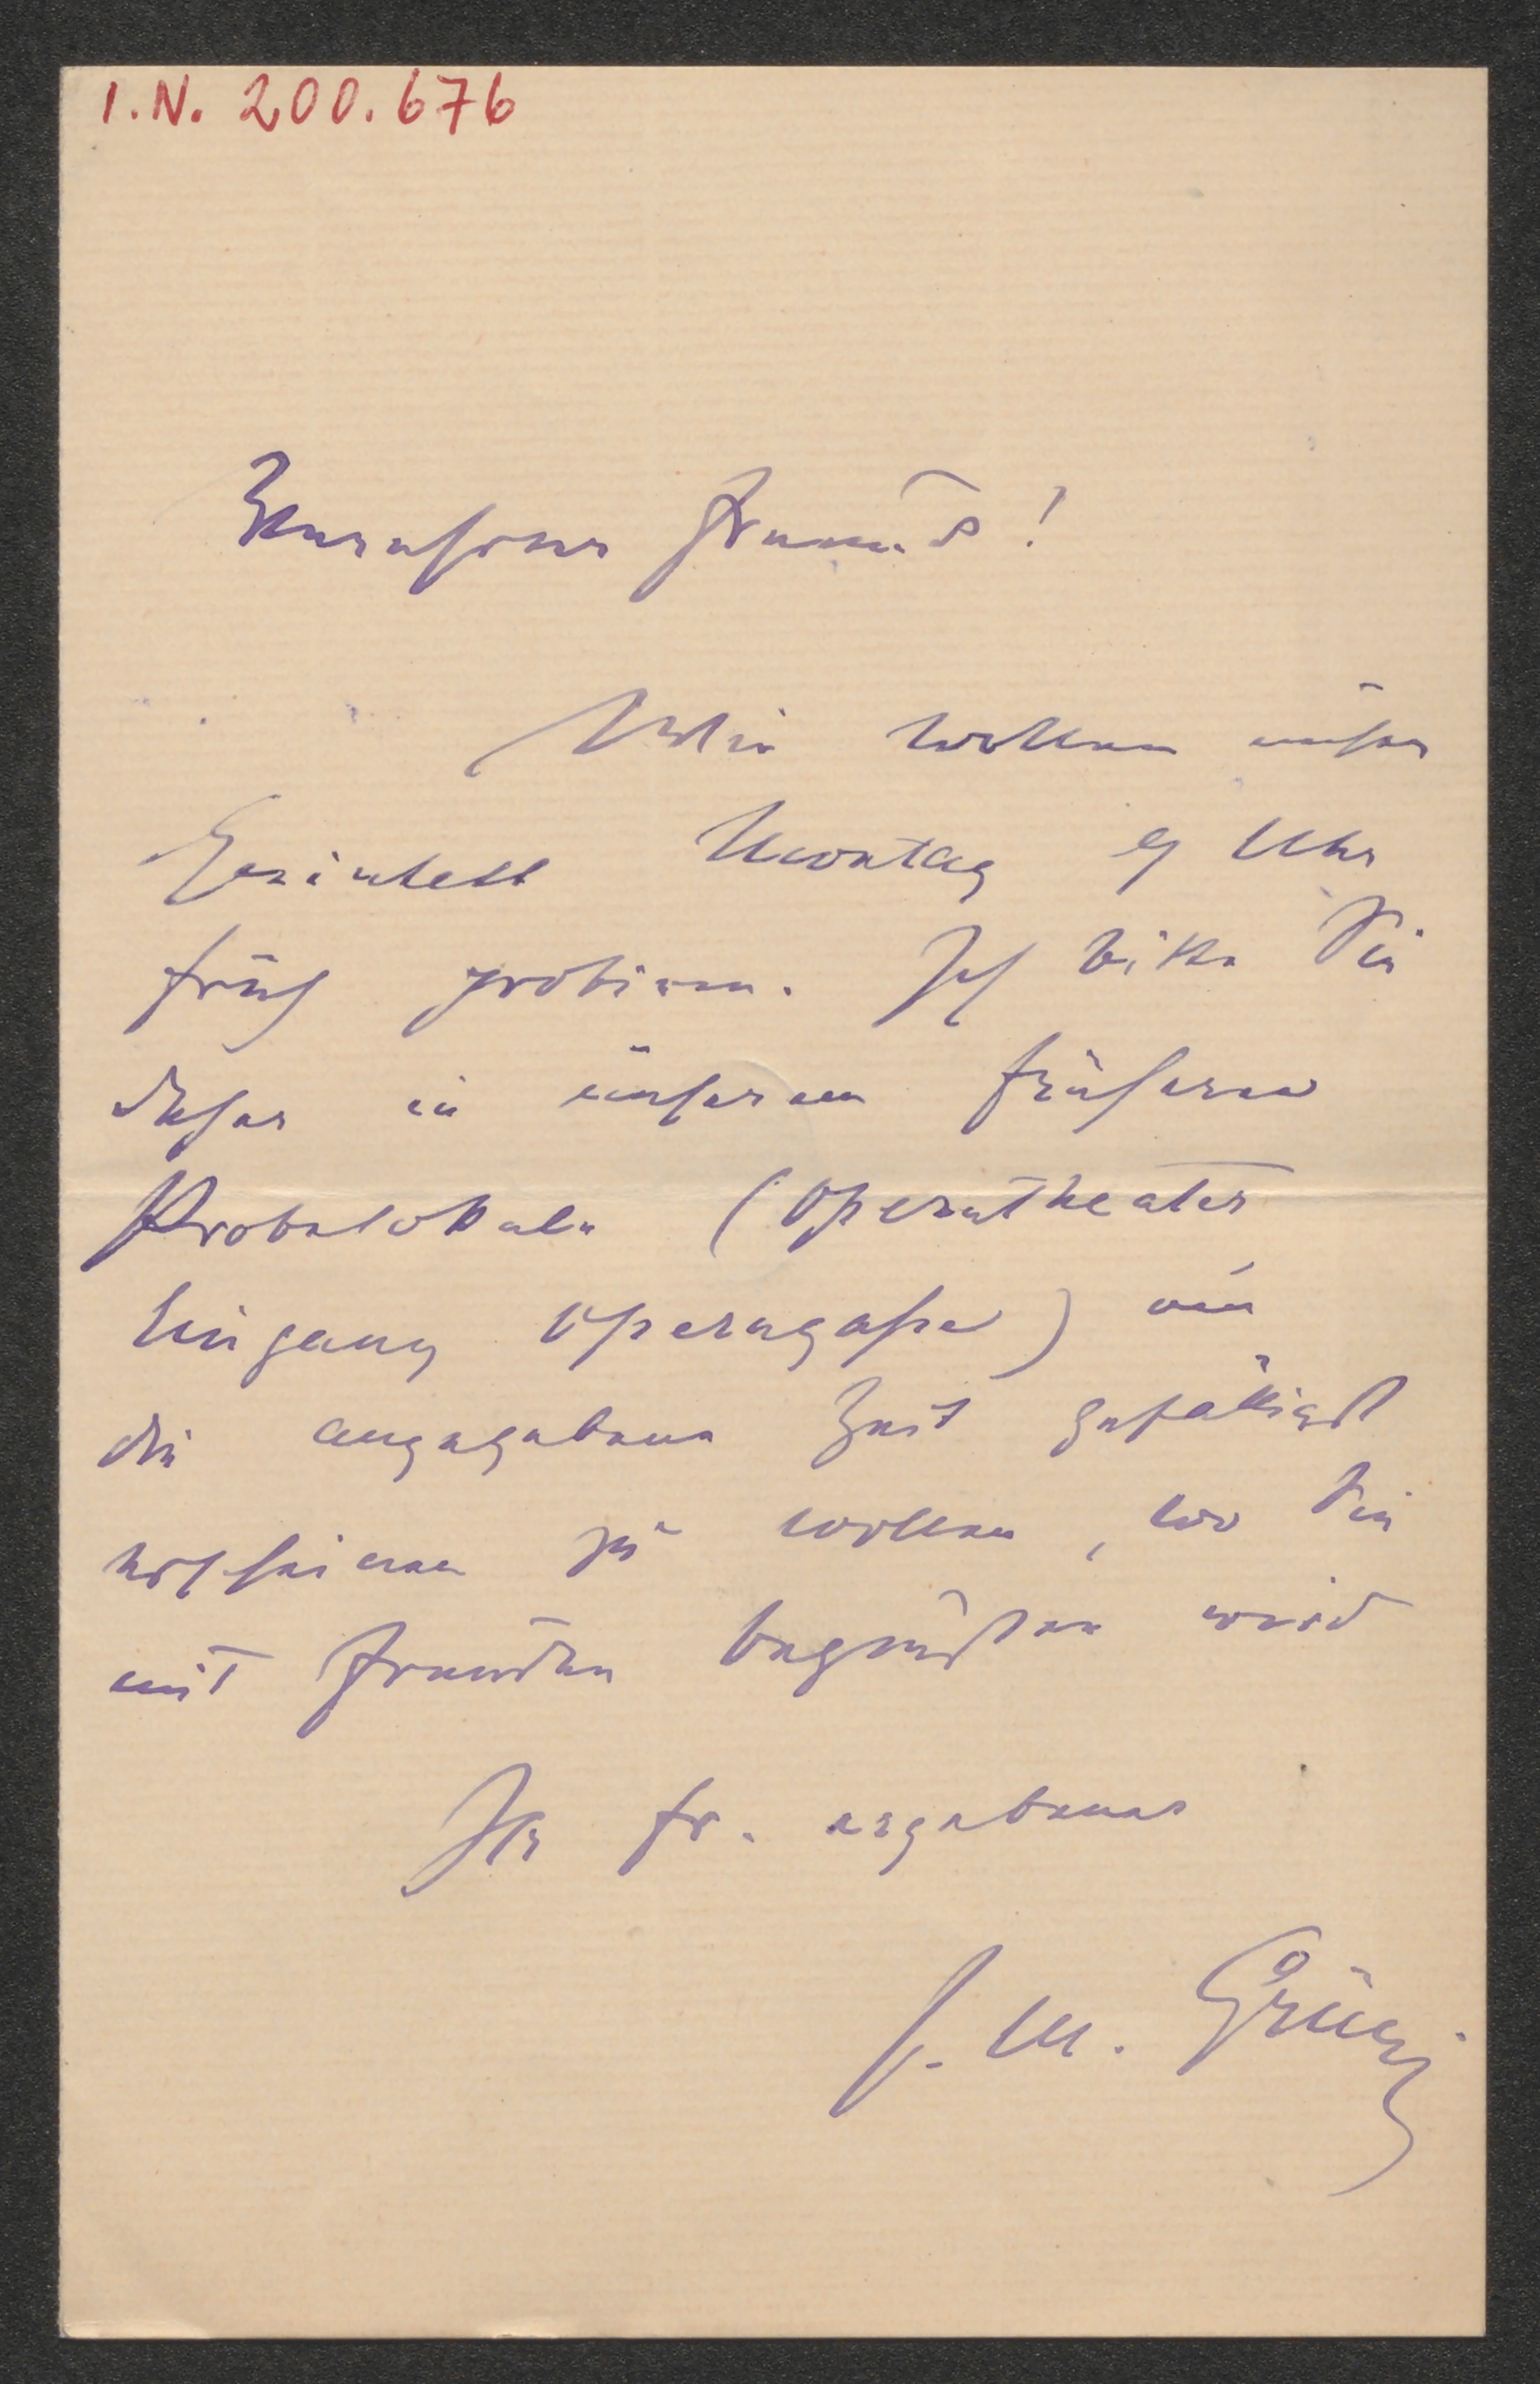 I.N. 200.676
Verehrter Freund!
Wir wollen unser
Quintett Montag 9 Uhr
früh probiren. Ich bitte Sie
daher in unserem früheren
Probelokale (Operntheater
Eingang Operngasse) um
die angegebene Zeit gefälligst
erscheinen zu wollen, wo Sie
mit Freuden begrüßen wird
Ihr fr. ergebener
J. M. Grün